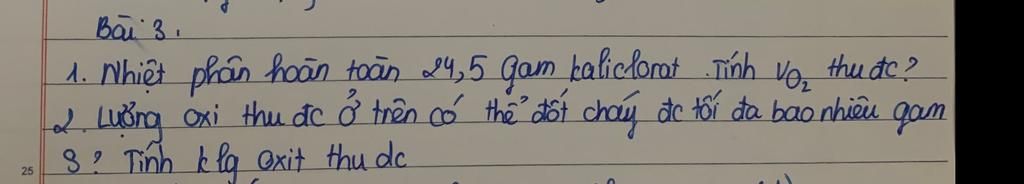 Bài 3.
1. Nhiệt phân hoàn toàn 24,5 gam kaliclorat. Tính VO₂ thu đc?
2. Lượng oxi thu đc ở trên có thể đốt cháy đc tối đa bao nhiêu gam
S? Tính klg oxit thu dc
25